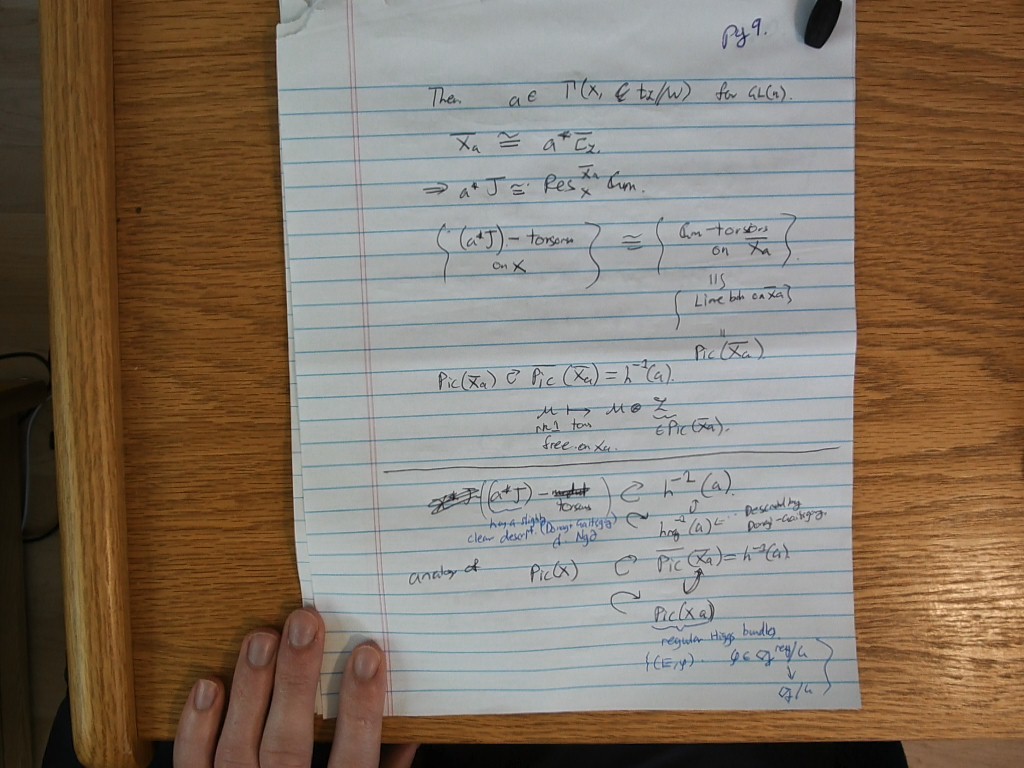 pg 9.
Then a ∈ Γ(X, t_L/W) for GL(n).
X̄_a ≅ a* C̄_L.
⇒ a* J ≅ Res_X^{X̄_a} Gm.
{(a*J) - torsors on X} ≅ {Gm-torsors on X̄_a}.
{Line bdl on X̄_a}
Pic(X̄_a)
Pic(X̄_a) ↻ P̄ic(X̄_a) = h⁻¹(a).
M ↦ M ⊗ L
rk 1 tors free on X̄_a.
∈ Pic(X̄_a).
((a*J) - torsors) ↻ h⁻¹(a).
has a slightly clear descript. (Donagi + Gaitsgory) cf. Ngô
↻ h_reg⁻¹(a) ← Described by Donagi-Gaitsgory.
analog of Pic(X) ↻ P̄ic(X̄_a) = h⁻¹(a)
↻ Pic(X̄_a)
regular Higgs bundles
{(E, φ). φ ∈ g^reg/G
↓
g/G}